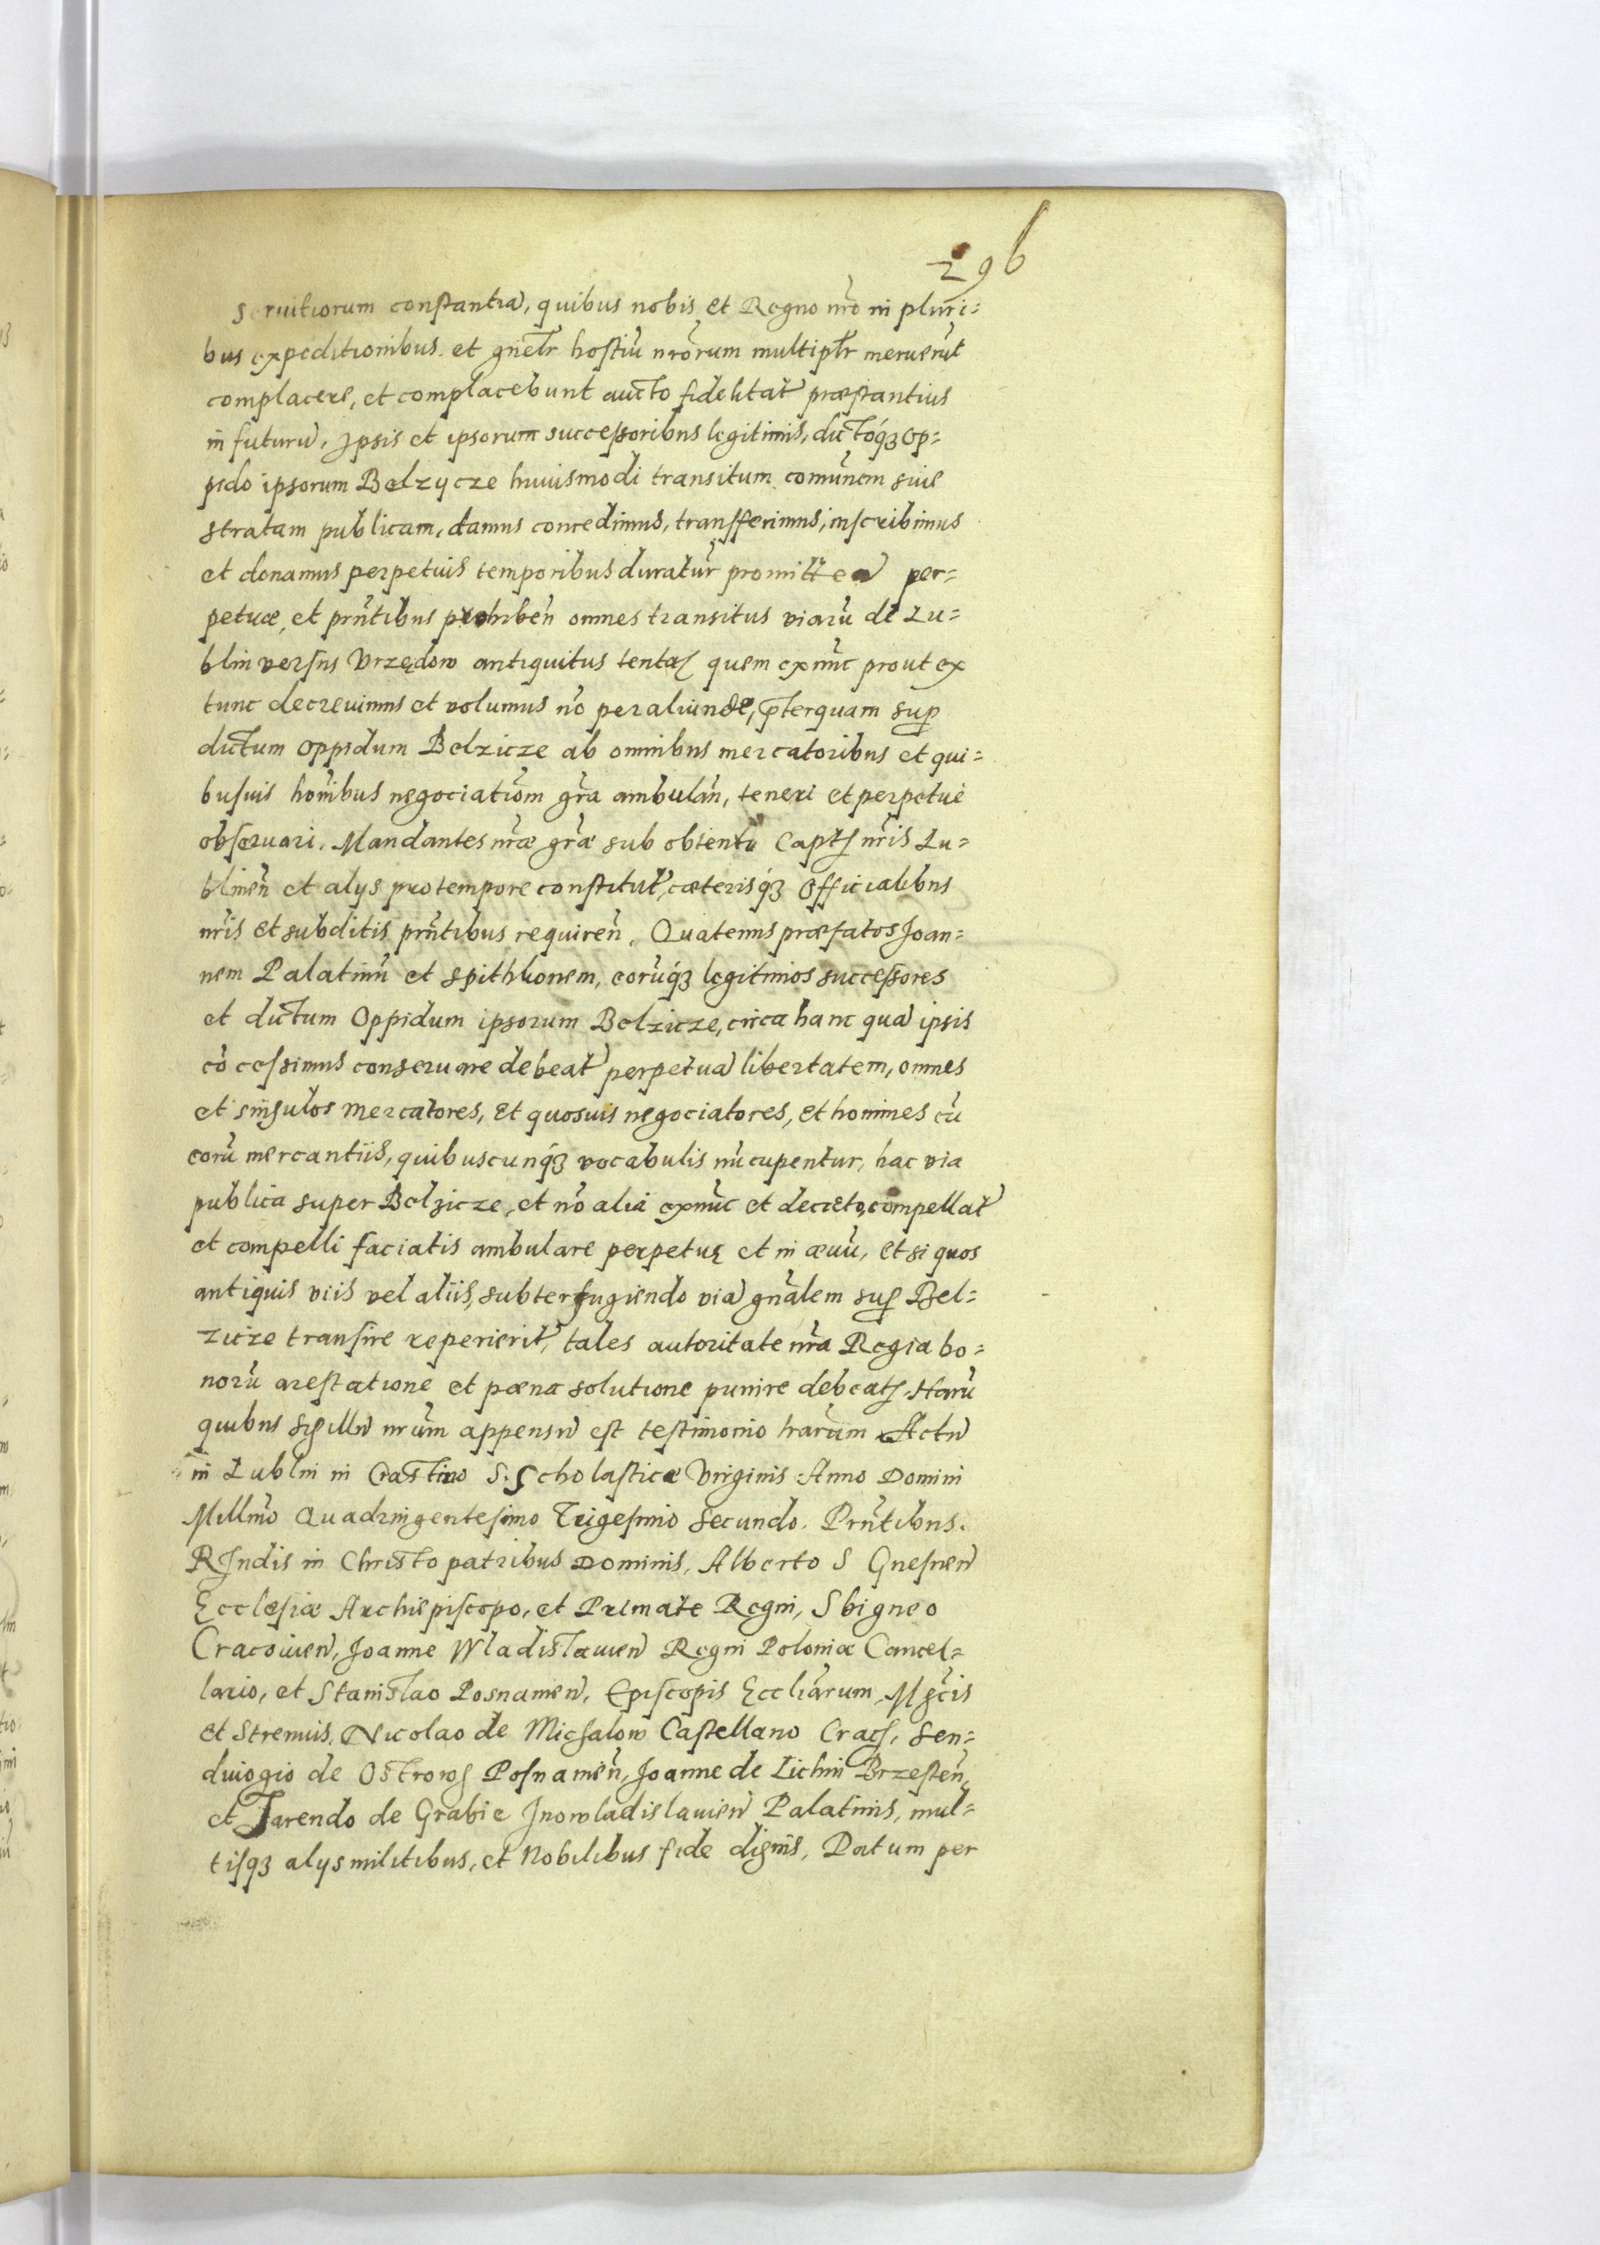 296
seruitiorum constantia, quibus nobis et Regno nr̃o in pluri=
bus expeditionibus. et gñelr hostiũ nr̃orum multiplr meruerũt
complacere, et complacebunt aucto fidelitat̃ præstantius
in futurũ. Ipsis et ipsorum successoribus legitimis, dictoq́ꝫ Op=
pido ipsorum Belzycze huiusmodi transitum comũnem siue
stratam publicam, damus concedimus, transferimus, inscribimus
et donamus perpetuis temporibus duratur̃ promitteñ per=
petuæ, et prñtibus prohibeñ omnes transitus viarũ de Lu=
blin versus Vrzędow antiquitus tentas quem exnũc prout ex
tunc decreuimus et volumus nõ per aliunde, p̃terquam sup
dictum oppidum Belzicze ab omnibus mercatoribus et qui=
busuis hoĩbus negociatiom̃ gr̃a ambulañ, teneri et perpetue
obseruari. Mandantes nr̃æ gr̃æ sub obtentu Capts nr̃is Lu=
blineñ et alys pro tempore constitut̃, cæterisq́ꝫ Officialibus
nr̃is et subditis prñtibus requireñ. Quatenus præfatos Joan=
nem Palatinũ et Spithkonem, eorũq́ꝫ legitimos successores
et dictum Oppidum ipsorum Belzicze, circa hanc quã ipsis
cõcessimus conseruare debeat̃ perpetuã libertatem, omnes
et singulos mercatores, et quosuis negociatores, et homines cũ
eorũ mercantiis, quibuscunq́ꝫ vocabulis nũcupentur, hac via
publica super Belzicze, et nõ alia exnũc et decreto, compellat̃
et compelli faciatis ambulare perpetuę et in æuũ, et si quos
antiquis viis vel aliis, subterfugiendo viã gñalem sup Bel=
zicze transire reperierit̃, tales autoritate nr̃a Regia bo=
norũ arestatione et pæna solutione punire debeats. Harũ
quibus sigillũ nr̃um appensũ est testimonio lr̃arum Actũ
in Lublin in Crastino S. Scholasticæ Virginis Anno Domini
Millm̃o Quadringentesimo Trigesimo Secundo. Prñtibus.
Rṽndis in Christo patribus Dominis, Alberto S Gnesneñ
Ecclesiæ Archiepiscopo, et Primate Regni, Sbigneo
Cracouieñ, Joanne Wladislauieñ Regni Poloniæ Cancel=
lario, et Stanislao Posnanieñ, Episcopis Eccliãrum, Mgc̃is
et Strenuis. Nicolao de Michalow Castellano Cracs, Sen=
diuogio de Ostrows Posnanieñ, Joanne de Lichin Brzesteñ,
et Jarendo de Grabie Jnowladislauieñ Palatinis, mul=
tisqꝫ alys militibus, et Nobilibus fide dignis, Datum per